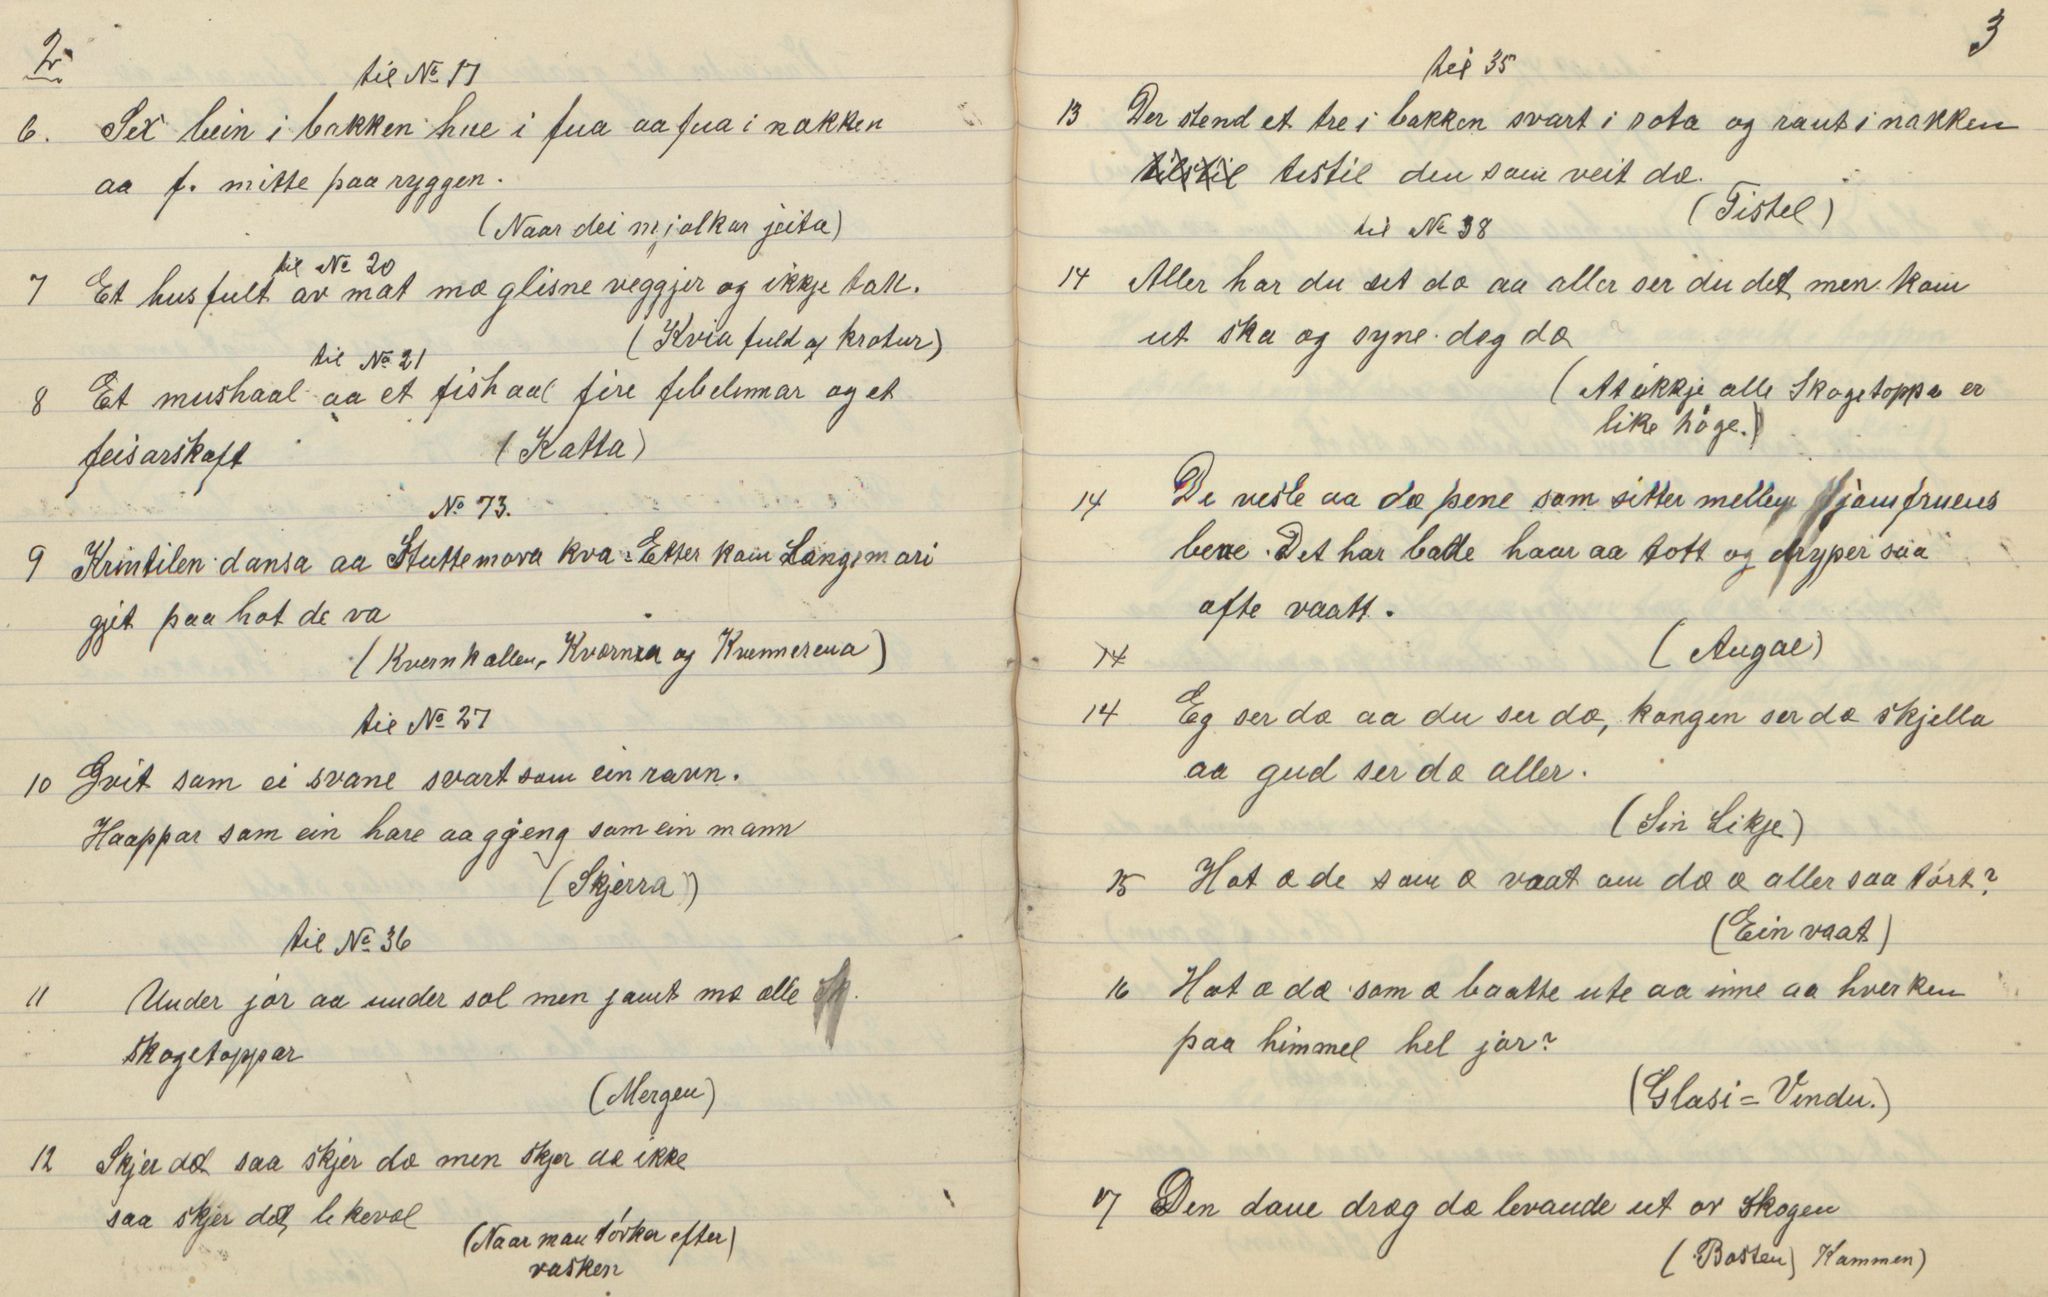 2
til No 17
6. Sex bein i bakken hue i fua aa fua i nakken
aa f. mitte paa ryggen.
(Naar dei mjolkar jeita)
til No 20
7 Et hus fult av mat mæ glisne veggjer og ikkje tak.
(Kvia fuld af krøtur)
til No 21
8 Et mushaal aa et fishaal fire febelemmar og et
feisarskaft (Katta)
No 73.
9 Krintilen dansa aa Stuttemora kva: Etter kom Langemari
gjit paa hot de va
(Kvernkallen, Kværna og Kvennerena)
til No 27
10 Gvit som ei svane svart som ein ravn.
Haappar som ein hare aa gjeng som ein mann
(Skjerra)
til No 36
11 Under jor aa under sol men jamt mæ alle
skogetoppar
(Mergen)
12 Skjer dæ saa skjer dæ men skjer dæ ikke
saa skjer dæ likevæl
(Naar man törker efter)
vasken
3
til 35
13 Der stend et tre i bakken svart i rota og raut i nakken
tistil den som veit dæ.
(Tistel)
til No 38
14 Aller har du set dæ aa aller ser du det, men kom
ut ska eg syne deg dæ
(At ikkje alle Skogetoppa er
like höge.)
14 De vesle aa dæ pene som sitter mellem jomfruens
bene. Det har baade haar aa tott og dryper saa
ofte vaatt.
(Augae)
14
14 Eg ser dæ aa du ser dæ, kongen ser dæ skjella
aa gud ser dæ aller.
(Sin Likje)
15 Hot æ de som æ vaat om dæ æ aller saa tört?
(Ein vaat)
16 Hot æ dæ som æ baatte ute aa inne aa hverken
paa himmel hel jor?
(Glasi = Vindu.)
17 Den daue dræg dæ levande ut or Skogen
(Bosten) Kammen)